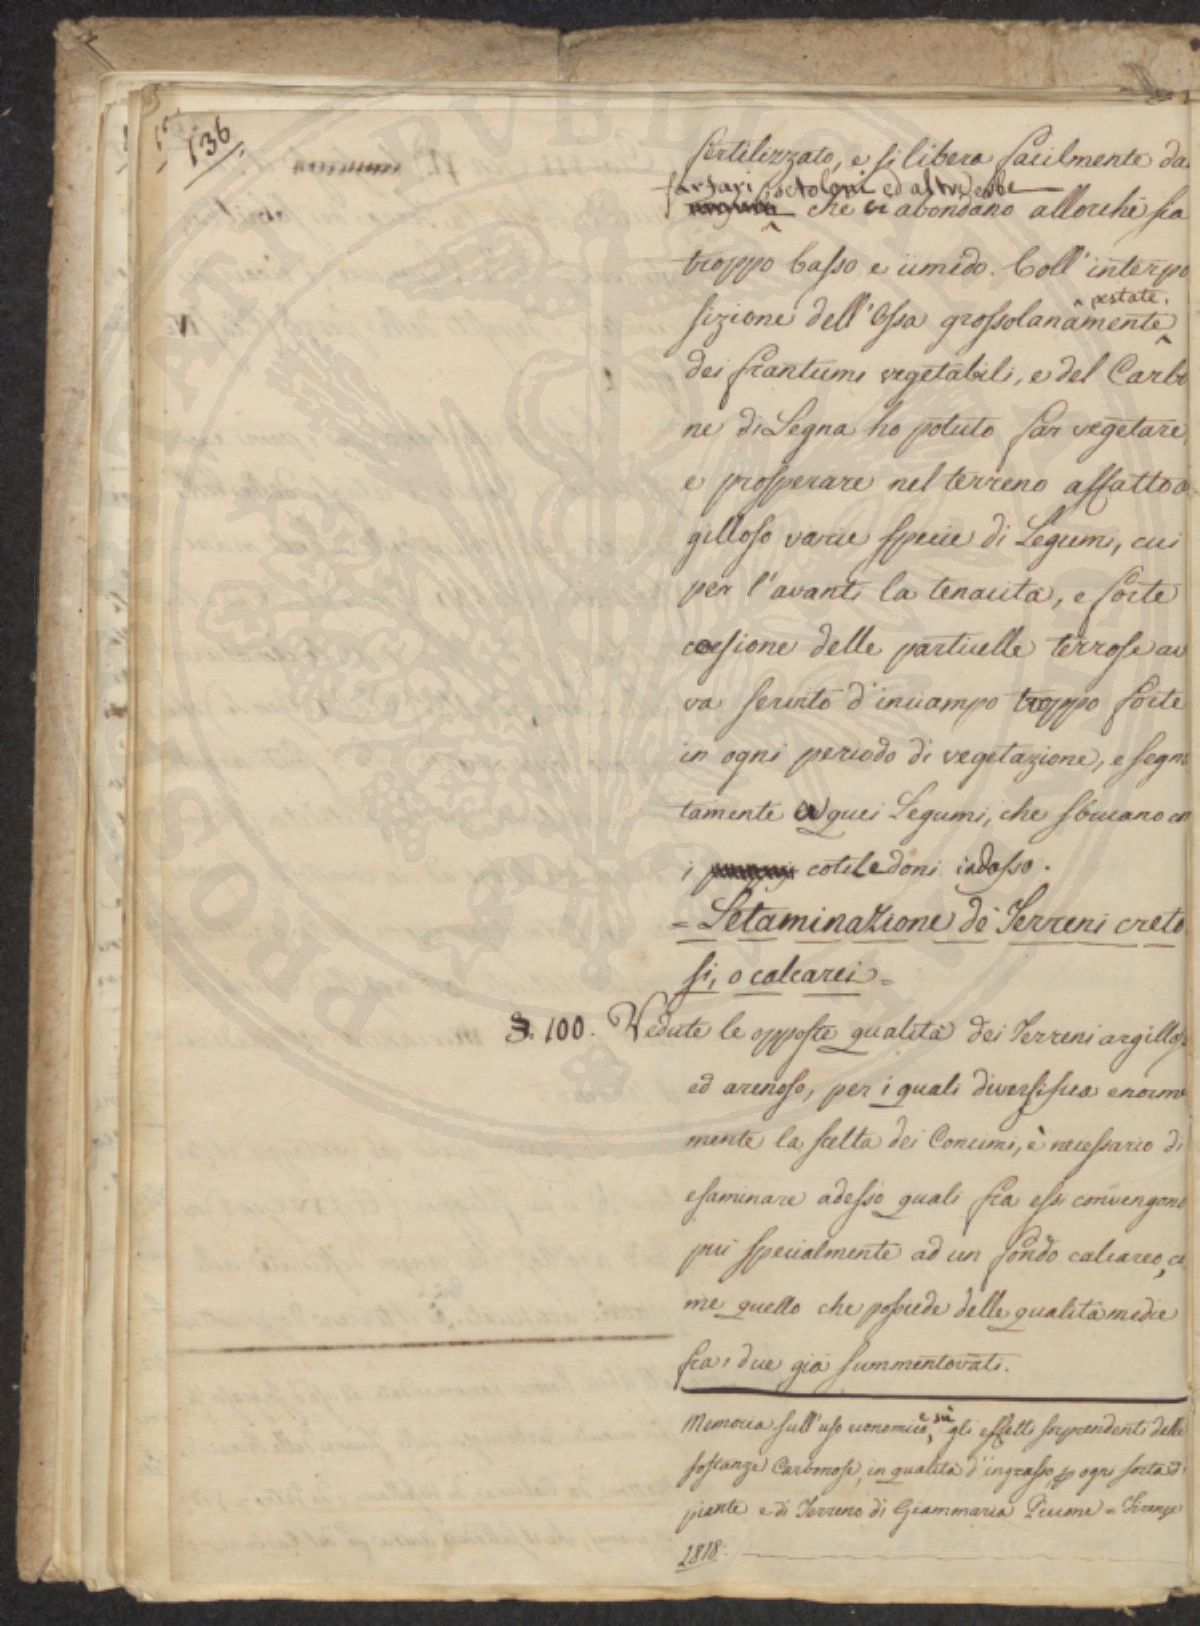 136
fertilizzato, e si libera facilmente da
farfari ed altre erbe
che vi abondano allorchè sia
troppo basso e umido. Coll' interpo
sizione dell' Ossa grossolanamente pestate,
dei frantumi vegetabili, e del Carbo
ne di Legna ho potuto far vegetare,
e prosperare nel terreno affatto a
gilloso varie specie di Legumi, cui
per l' avanti la tenacità, e forte
coesione delle particelle terrose av
va servito d' inciampo troppo forte
in ogni periodo di vegetazione, e segna
tamente a quei Legumi, che sbucano con
i cotiledoni indosso.
= Letaminazione de' Terreni creto
si, o calcarei =
§. 100. Vedute le opposte qualità dei Terreni argilloso
ed arenoso, per i quali diversifica enorme
mente la scelta dei Concimi, è necessario di
esaminare adesso quali fra essi convengono
più specialmente ad un fondo calcareo, co
me quello che possiede delle qualità medie
fra i due già summentovati.
Memoria sull' uso economico, e su gli effetti sorprendenti delle
sostanze Carbonose, in qualità d' ingrasso, p ogni sorta di
piante e di Terreno di Giammaria Piccone = Firenze
1818.
PROSPERITATI PUBLICAE